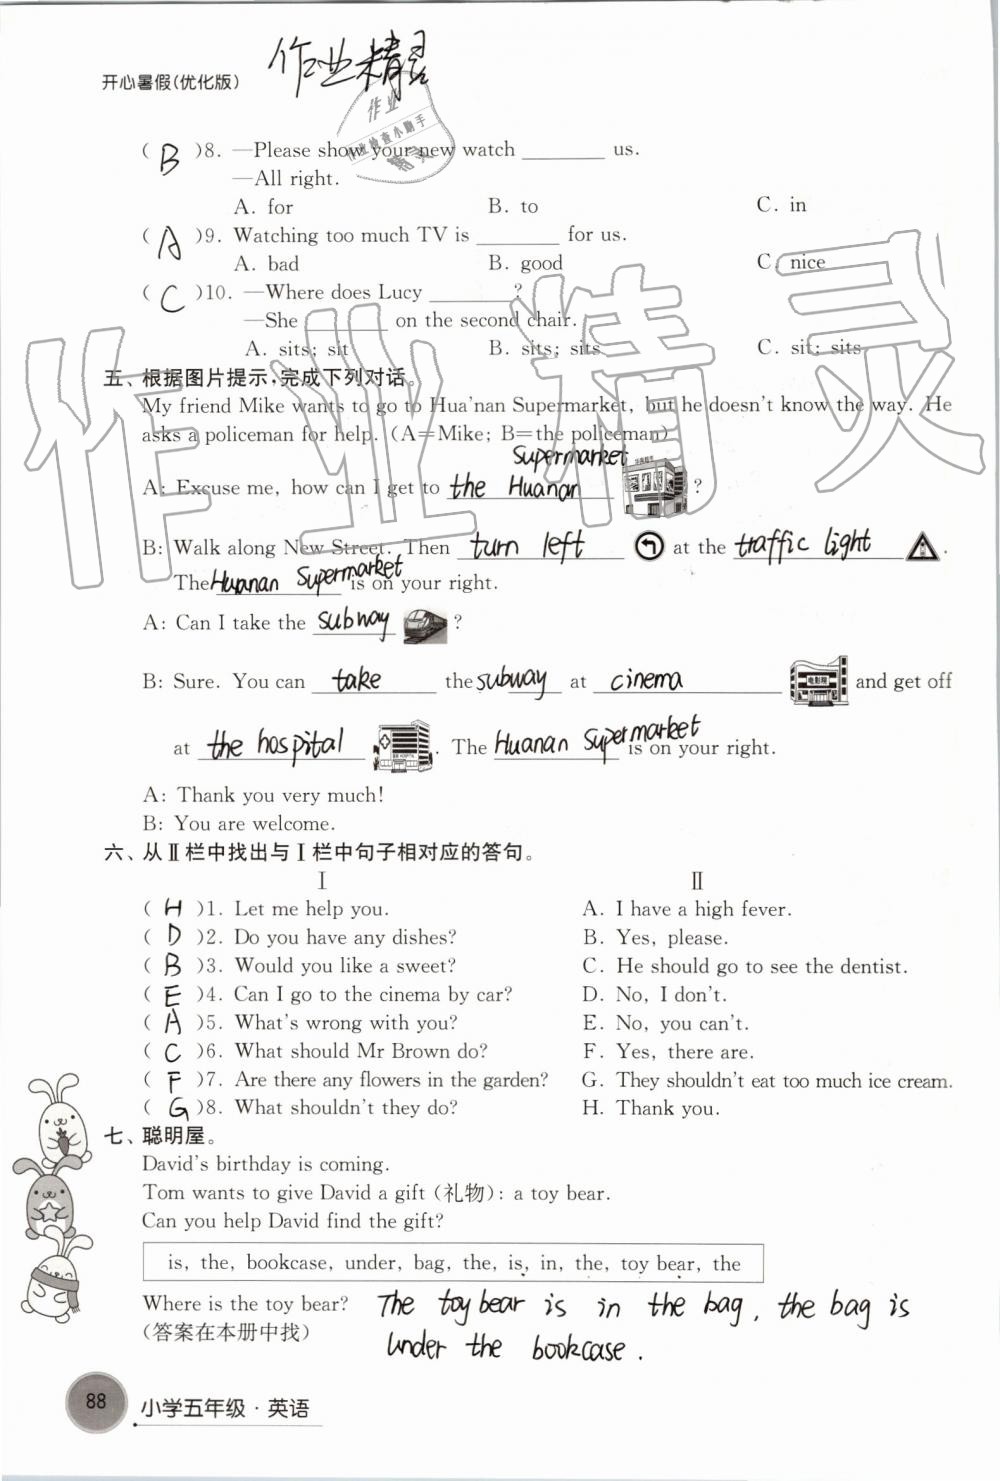 开心暑假(优化版)
作业精灵
作业
作业检查小助手
精灵
( B )8. —Please show your new watch ________ us.
—All right.
A. for B. to C. in
( A )9. Watching too much TV is ________ for us.
A. bad B. good C. nice
( C )10. —Where does Lucy ________?
—She ________ on the second chair.
A. sits; sit B. sits; sits C. sit; sits
五、根据图片提示,完成下列对话。
My friend Mike wants to go to Hua'nan Supermarket, but he doesn't know the way. He
asks a policeman for help. (A=Mike; B=the policeman)
A: Excuse me, how can I get to the Huanan Supermarket 华南超市 ?
B: Walk along New Street. Then turn left at the traffic light .
The Huanan Supermarket is on your right.
A: Can I take the subway ?
B: Sure. You can take the subway at cinema 电影院 and get off
at the hospital HOSPITAL . The Huanan Supermarket is on your right.
A: Thank you very much!
B: You are welcome.
六、从Ⅱ栏中找出与Ⅰ栏中句子相对应的答句。
Ⅰ Ⅱ
( H )1. Let me help you. A. I have a high fever.
( D )2. Do you have any dishes? B. Yes, please.
( B )3. Would you like a sweet? C. He should go to see the dentist.
( E )4. Can I go to the cinema by car? D. No, I don't.
( A )5. What's wrong with you? E. No, you can't.
( C )6. What should Mr Brown do? F. Yes, there are.
( F )7. Are there any flowers in the garden? G. They shouldn't eat too much ice cream.
( G )8. What shouldn't they do? H. Thank you.
七、聪明屋。
David's birthday is coming.
Tom wants to give David a gift (礼物): a toy bear.
Can you help David find the gift?
is, the, bookcase, under, bag, the, is, in, the, toy bear, the
Where is the toy bear? The toy bear is in the bag, the bag is
(答案在本册中找) under the bookcase.
88
小学五年级·英语
作业精灵